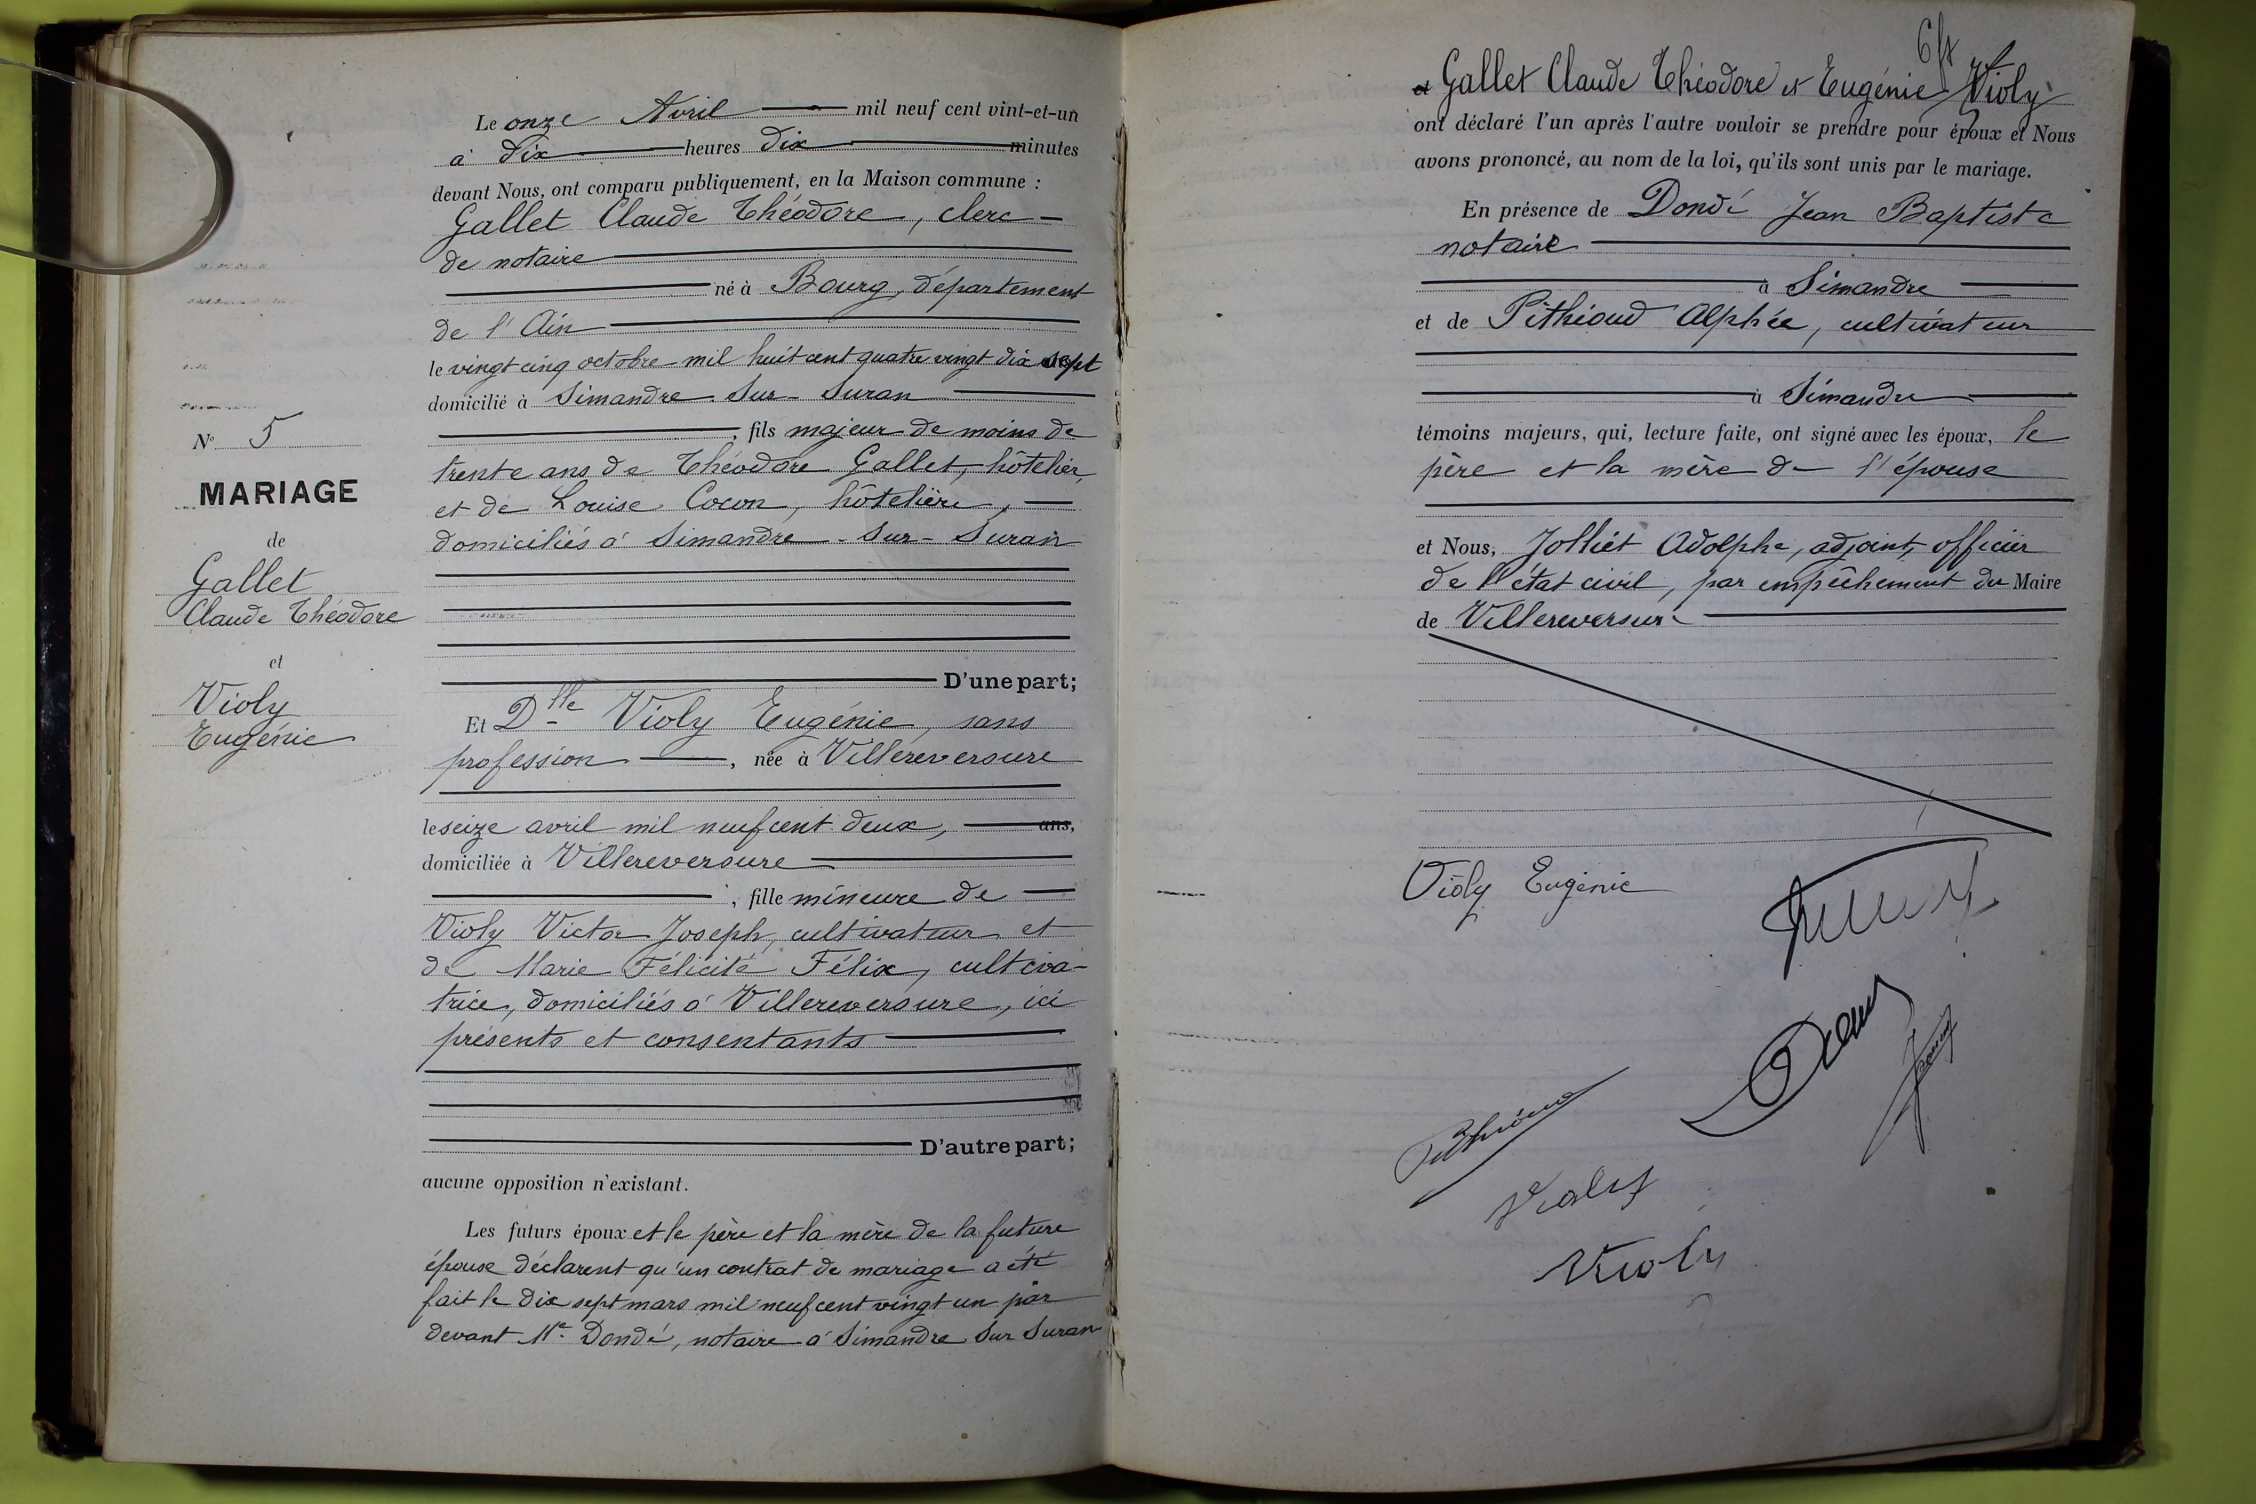 Le onze Avril mil neuf cent vint-et-un
à dix heures dix minutes
devant Nous, ont comparu publiquement, en la Maison commune :
Gallet Claude Théodore, clerc
de notaire
né à Bourg, département
de l'Ain
le vingt cinq octobre mil huit cent quatre vingt dix sept
domicilié à Simandre-sur-Suran
, fils majeur de moins de
trente ans de Théodore Gallet, hôtelier,
et de Louise Cocon, hôtelière,
domiciliés à Simandre-sur-Suran
D'une part;
Et Dlle Violy Eugénie, sans
profession, née à Villereversure
le seize avril mil neuf cent deux, ans,
domiciliée à Villereversure
, fille mineure de
Violy Victor Joseph, cultivateur et
de Marie Félicité Félix, cultiva-
trice, domiciliés à Villereversure, ici
présents et consentants
D'autre part;
aucune opposition n'existant.
Les futurs époux et le père et la mère de la future
épouse déclarent qu'un contrat de mariage a été
fait le dix sept mars mil neuf cent vingt un par
devant Me Dondé, notaire à Simandre sur Suran
No 5
MARIAGE
de
Gallet
Claude Théodore
et
Violy
Eugénie
Gallet Claude Théodore et Eugénie Violy
ont déclaré l'un après l'autre vouloir se prendre pour époux et Nous
avons prononcé, au nom de la loi, qu'ils sont unis par le mariage.
En présence de Dondé Jean Baptiste
notaire
à Simandre
et de Pithioud Alphée, cultivateur
à Simandre
témoins majeurs, qui, lecture faite, ont signé avec les époux, le
père et la mère de l'épouse
et Nous, Jolliet Adolphe, adjoint, officier
de l'état civil, par empêchement du Maire
de Villereversure
Violy Eugénie
Pithioud
Violy
Violy